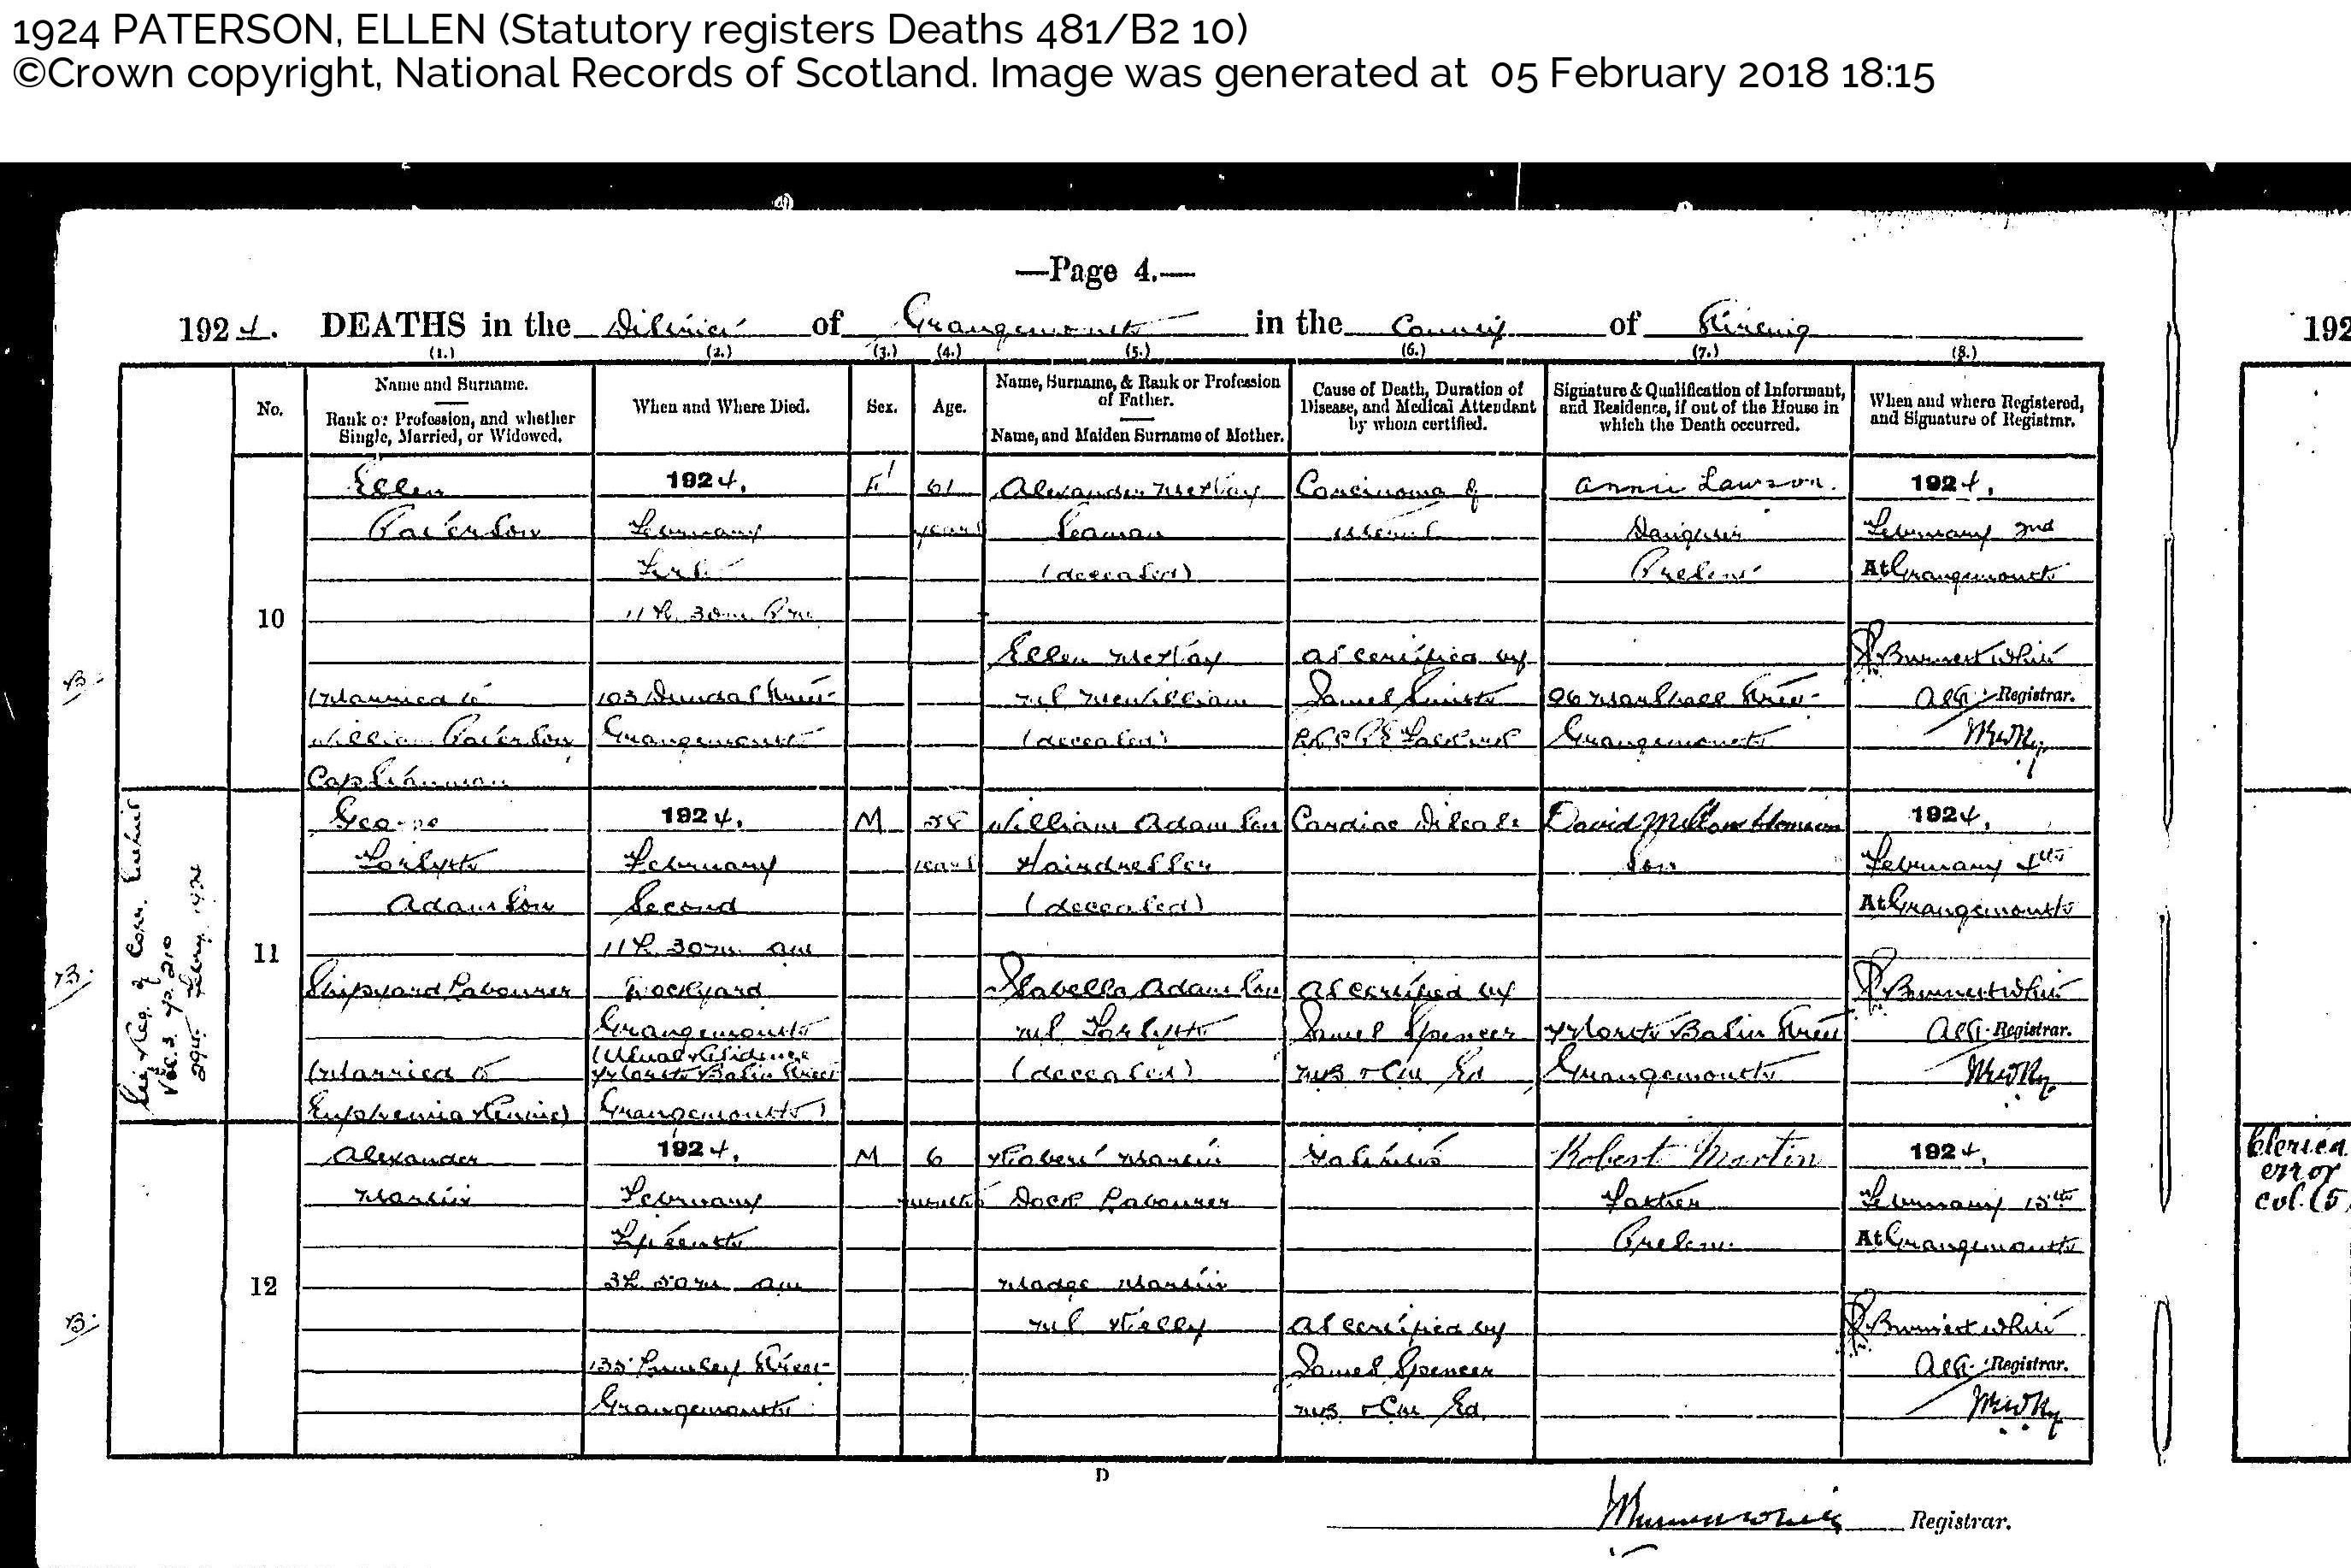 1924 PATERSON, ELLEN (Statutory registers Deaths 481/B2 10)
©Crown copyright, National Records of Scotland. Image was generated at 05 February 2018 18:15
—Page 4.—
1924. DEATHS in the District of Grangemouth in the County of Stirling
192
(1.) (2.) (3.) (4.) (5.) (6.) (7.) (8.)
No.
Name and Surname.
Rank or Profession, and whether
Single, Married, or Widowed.
When and Where Died.
Sex.
Age.
Name, Surname, & Rank or Profession
of Father.
Name, and Maiden Surname of Mother.
Cause of Death, Duration of
Disease, and Medical Attendant
by whom certified.
Signature & Qualification of Informant,
and Residence, if out of the House in
which the Death occurred.
When and where Registered,
and Signature of Registrar.
10
Ellen
Paterson
Married to
William Paterson
Capstanman
1924.
February
First
11h. 30m. Pm
103 Dundas Street
Grangemouth
F
61
years
Alexander McKay
Seaman
(deceased)
Ellen McKay
m.s. McWilliam
(deceased)
Carcinoma of
uterus
as certified by
James Smith
Annie Lawson.
Daughter
Present
96 Marshall Street
Grangemouth
1924.
February 2nd
At Grangemouth
Burnett White
Asst. Registrar.
11
George
Forsyth
Adamson
Shipyard Labourer
Married to
1924.
February
Second
11h. 30m. am
Dockyard
Grangemouth
(Usual Residence
7 North Basin Street
Grangemouth)
M
years
William Adamson
Hairdresser
(deceased)
Isabella Adamson
m.s. Forsyth
(deceased)
Cardiac Disease
as certified by
James Spencer
M.B. & C.M. Ed
David
Son
7 North Basin Street
Grangemouth
1924.
February 4th
At Grangemouth
Burnett White
Asst. Registrar.
See Reg. of Corr. Entries
Vol. 3 p. 210
29th Feby. 1924
12
Alexander
Martin
1924.
February
Fifteenth
3h. 50m am
135 Lumley Street
Grangemouth
M
6
months
Robert Martin
Dock Labourer
Madge Martin
m.s. Kelly
as certified by
James Spencer
M.B. & C.M. Ed.
Robert Martin
Father
Present
1924.
February 15th
At Grangemouth
Burnett White
Asst. Registrar.
Clerical
error
col. (5
D
Registrar.